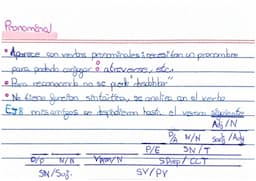 Pronominal
• Aparece con verbos pronominales: necesitan un pronombre
para poderlo conjugar • atreverse, etc.
• Para reconocerlo no se puede "desdoblar"
• No tiene función sintáctica, se analiza en el verbo
Ej: mis amigos se despidieron hasta el verano siguiente
Adj/N
D/A N/N SAdj/Adj
P/E SN/T
D/P N/N V/N SPrep/CCT
SN/Suj. SV/PV